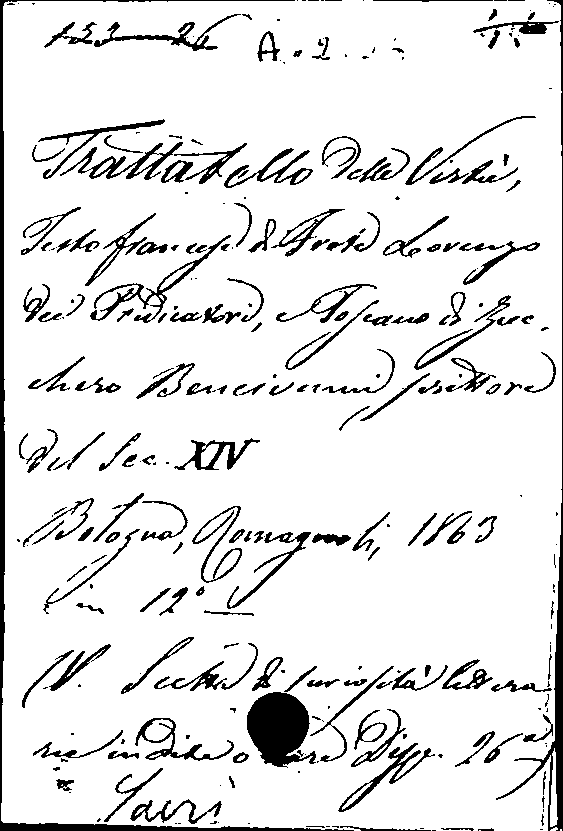 153-26 A. 2.
Trattatello delle Virtù,
Testo francese di Frate Lorenzo
dei Predicatori, e Toscano di Zuc-
chero Bencivenni scrittore
del Sec. XIV
Bologna, Romagnoli, 1863
in 12°
(V. Scelta di curiosità lettera
rie inedite o rare Disp. 26ª)